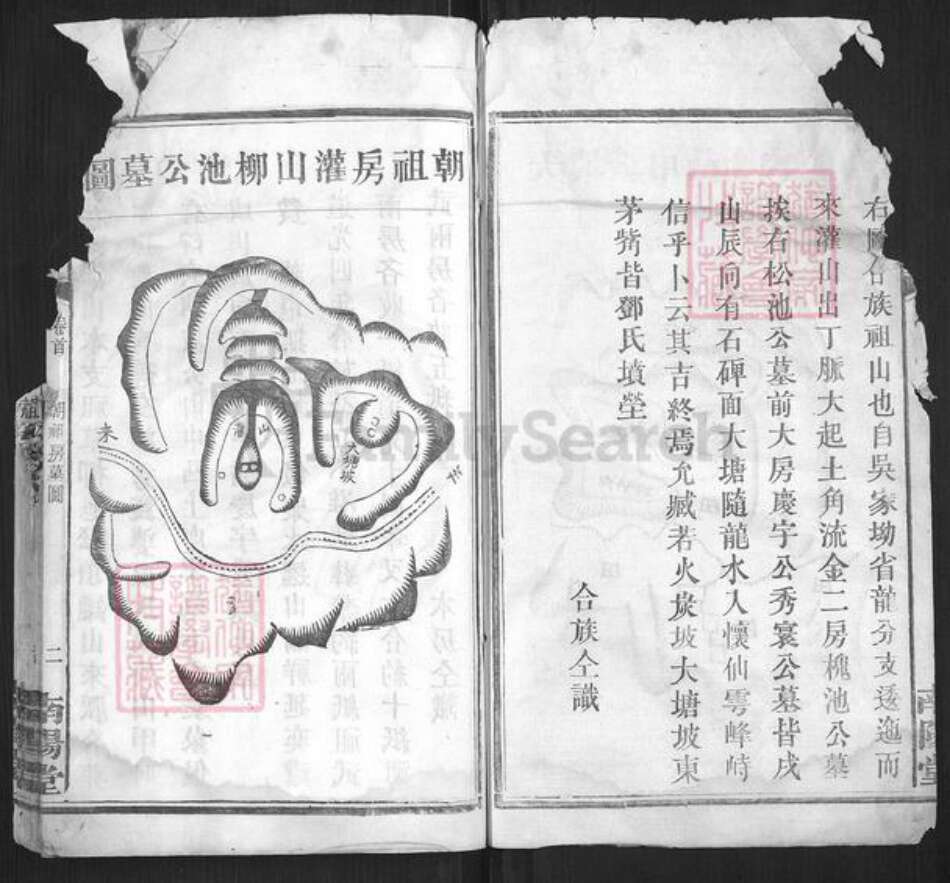 右圖合族祖山也自吳家坳省龍分支逶迤而
來灌山出丁脈大起土角流金二房槐池公墓
挨右松池公墓前大房慶宇公秀寰公墓皆戌
山辰向有石碑面大塘隨龍水入懷仙雩峰峙
信乎卜云其吉終焉允臧若火炭坡大塘坡東
茅嶺皆鄧氏墳塋
合族仝識
南陽堂
朝祖房灌山柳池公墓圖
灌山
大塘坡
來
卷首
朝祖房墓圖
二
南陽堂
FamilySearch